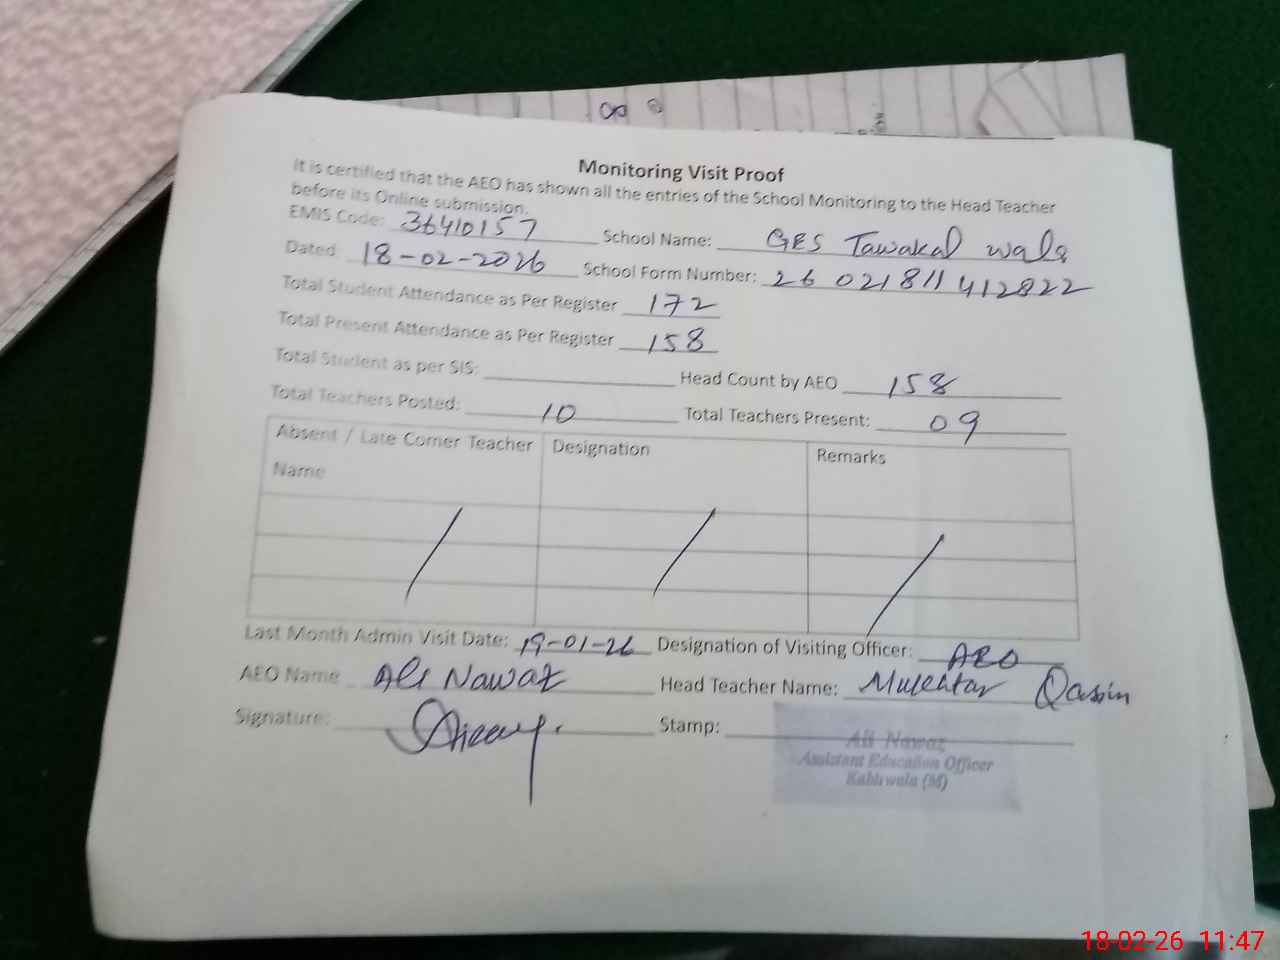 Monitoring Visit Proof
It is certified that the AEO has shown all the entries of the School Monitoring to the Head Teacher
before its Online submission.
EMIS Code: 36410157 School Name: GES Tawakal wala
Dated 18-02-2026 School Form Number: 26 021811412822
Total Student Attendance as Per Register 172
Total Present Attendance as Per Register 158
Total Student as per SIS: Head Count by AEO 158
Total Teachers Posted: 10 Total Teachers Present: 09
Absent / Late Comer Teacher Name Designation Remarks
Last Month Admin Visit Date: 19-01-26 Designation of Visiting Officer: AEO
AEO Name Ali Nawaz Head Teacher Name: Mukhtar Qasim
Signature: Stamp:
Ali Nawaz
Assistant Education Officer
18-02-26 11:47